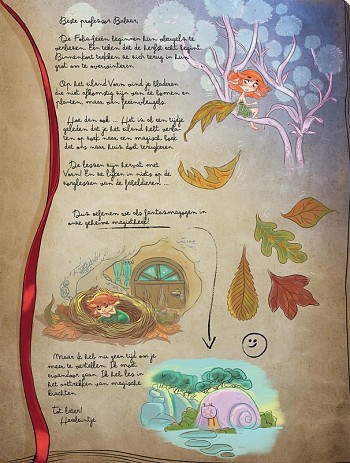 Beste professor Balaar,
De Foliafeeën beginnen hun vleugels te
verliezen. Een teken dat de herfst echt begint.
Binnenkort trekken ze zich terug in hun
grot om te overwinteren.
Op het eiland Vorn vind je bladeren
die niet afkomstig zijn van de bomen en
planten, maar van feeënvleugels.
Hoe dan ook ... Het is al een tijdje
geleden dat je het eiland hebt verla-
ten op zoek naar een magisch boek
dat ons naar huis doet terugkeren.
De lessen zijn hervat met
Vorn! En ze lijken in niets op de
zorglessen van de fabeldieren ...
Dus oefenen we als fantasmagogen in
onze geheime magietheek!
Maar ik heb nu geen tijd om je
meer te vertellen. Ik moet
ervandoor gaan. Ik heb les in
het onttrekken van magische
krachten.
Tot later!